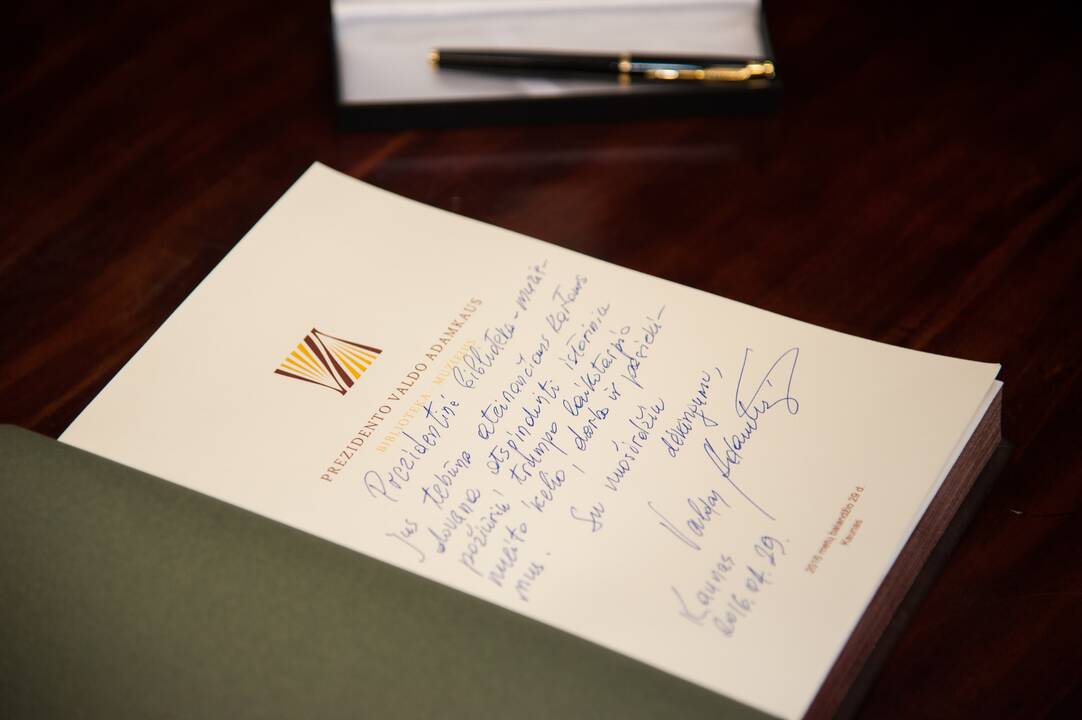 PREZIDENTO VALDO ADAMKAUS
BIBLIOTEKA MUZIEJUS
Prezidentinė biblioteka-muzie-
jus tebūna ateinančioms kartoms
dovana atspindinti istoriniu
požiūriu trumpo laikotarpio
nueito kelio, darbo ir pasieki-
mus.
Su nuoširdžiu
dėkingumu,
Valdas Adamkus
Kaunas
2016.04.29.
2016 metų balandžio 29 d.
Kaunas